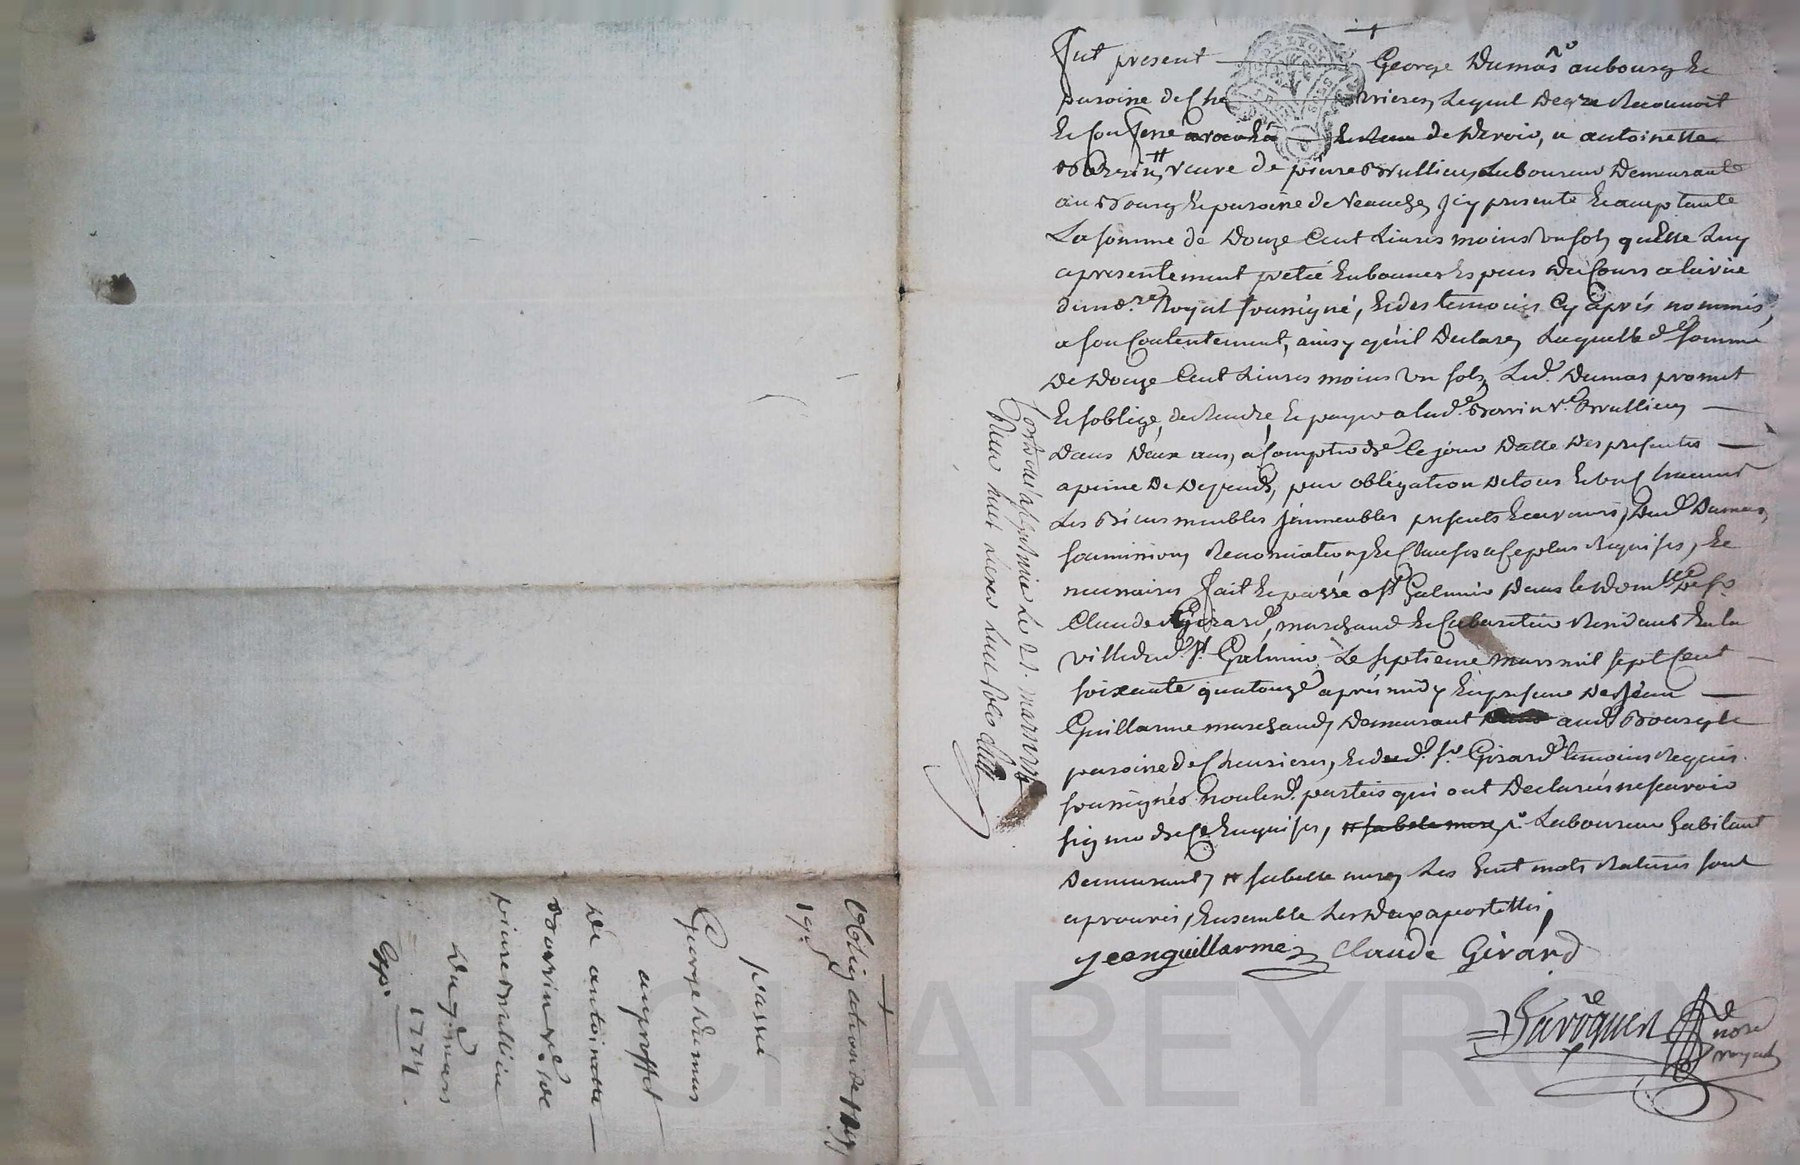 +
Fut present George Dumas ru aubourg &
paroisse de Che rrieres, Lequel Degré Reconnoit
Et Confesse avoir de devoir, a antoinette
veuve de pierre Brullieu, Laboureur Demeurante
au Bourg & paroisse de Veauche, Icy presente & acceptante
La somme de Douze Cent Livres moins Un sols, quelle Luy
a presentement pretée En bonnes Especes Du Cours a la vüe
du nore Royal soussigné, & des temoins Cy après nommés,
a son Contentement, ainsy qu'il Declare, Laquelle de somme
De Douze Cent Livres moins Un sols, Led. Dumas promet
Et soblige, de Rendre, & payer a lad. Borrin ve Brullieu,
Dans Deux ans, a Compter de Ce jour Datte Des presentes
a peine De Depends, pour obligation De tous
Les Biens meubles Immeubles presents & avenirs, Dud. Dumas,
soumissions, Renonciations, & Clauses a Ce plus Requises, &
necessaires fait & passé a St. Galmier Dans le Domlle de sr.
Claude Girard, marchand & Cabaretier Residant En la
ville dud. St. Galmier Le septieme mars mil sept Cent
soixante quatorze après midy En presence De Jean
Guillarme marchand, Demeurant aud. Bourg &
paroisse de Chevrieres, & dud. sr. Girard temoins Requis
soussignés non les d. parties qui ont Declarées ne scavoir
signer de Ce Enquises, ro. Laboureur habitant
Demeurant, Les huit mots Raturés sont
aprouvés, Ensemble Les Deux apostilles,
jean guillarme Claude Girard
Laroquer
nore
royal
Controllé a St galmier Le 21. mars 1774
Reçu huit livres huit sols
+
Obligation de
1199
passé
George Dumas
au proffit
De antoinette
Borrin ve. de
pierre Brullieu
Du 7. mars
1774.
Exp.
CHAREYRON